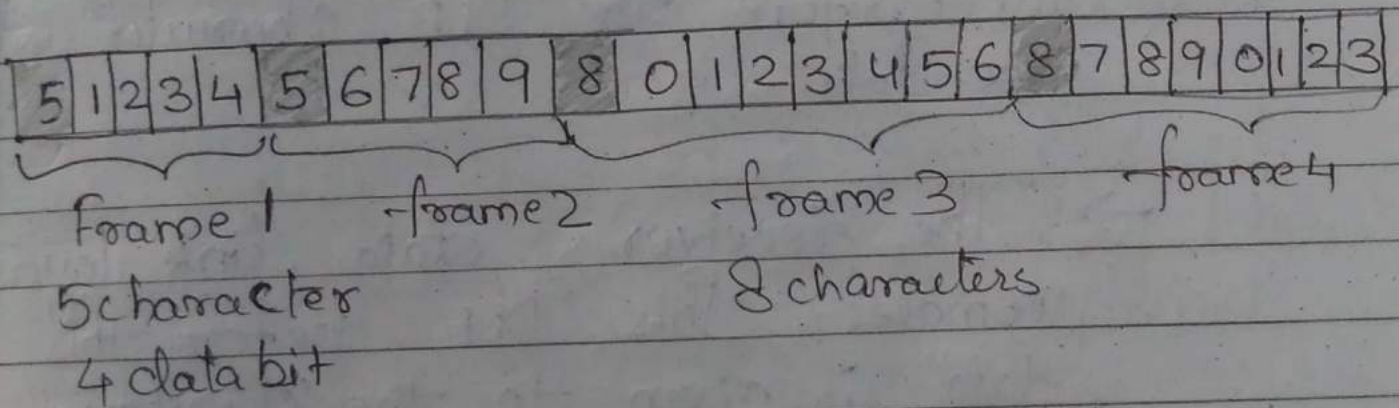 5 1 2 3 4 5 6 7 8 9 8 0 1 2 3 4 5 6 8 7 8 9 0 1 2 3
Frame 1 frame 2 frame 3 frame 4
5 character 8 characters
4 data bit